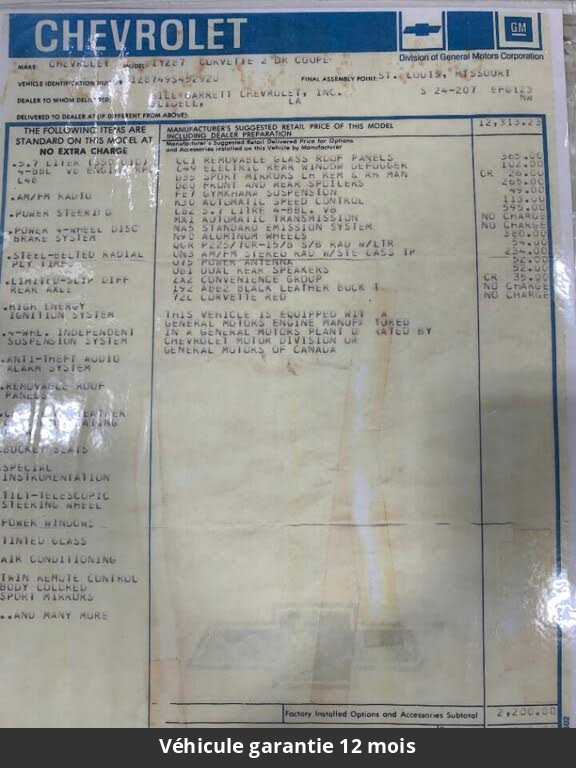 CHEVROLET
GM
Division of General Motors Corporation
MAKE: CHEVROLET MODEL: 1YZ87 CORVETTE 2 DR COUPE
VEHICLE IDENTIFICATION NUMBER 1Z87495492920 FINAL ASSEMBLY POINT: ST. LOUIS, MISSOURI
DEALER TO WHOM DELIVERED BILL GARRETT CHEVROLET, INC. S 24-207 EP6123
SLIDELL, LA NW
DELIVERED TO DEALER AT (IF DIFFERENT FROM ABOVE):
THE FOLLOWING ITEMS ARE
STANDARD ON THIS MODEL AT
NO EXTRA CHARGE
.5.7 LITER (350 CID)
4-BBL V8 ENGINE
L48
.AM/FM RADIO
.POWER STEERING
.POWER 4-WHEEL DISC
BRAKE SYSTEM
.STEEL-BELTED RADIAL
PLY TIRES
.LIMITED-SLIP DIFF
REAR AXLE
.HIGH ENERGY
IGNITION SYSTEM
.4-WHL. INDEPENDENT
SUSPENSION SYSTEM
.ANTI-THEFT AUDIO
ALARM SYSTEM
.REMOVABLE ROOF
PANELS
LEATHER
.BUCKET SEATS
.SPECIAL
INSTRUMENTATION
TILT-TELESCOPIC
STEERING WHEEL
POWER WINDOWS
TINTED GLASS
AIR CONDITIONING
TWIN REMOTE CONTROL
BODY COLORED
SPORT MIRRORS
..AND MANY MORE
MANUFACTURER'S SUGGESTED RETAIL PRICE OF THIS MODEL
INCLUDING DEALER PREPARATION 12,313.23
Manufacturer's Suggested Retail Delivered Price for Options
and Accessories Installed on this Vehicle by Manufacturer
CC1 REMOVABLE GLASS ROOF PANELS 365.00
C49 ELECTRIC REAR WINDOW DEFOGGER 102.00
D35 SPORT MIRRORS LH REM & RH MAN OR 28.00
D80 FRONT AND REAR SPOILERS 265.00
FE7 GYMKHANA SUSPENSION 49.00
K30 AUTOMATIC SPEED CONTROL 113.00
L82 5.7 LITRE 4-BBL. V8 565.00
MX1 AUTOMATIC TRANSMISSION NO CHARGE
NA5 STANDARD EMISSION SYSTEM NO CHARGE
N90 ALUMINUM WHEELS 380.00
QGR P225/70R-15/B S/B RAD W/LTR 54.00
UN3 AM/FM STEREO RAD W/STE CASS TP 234.00
U75 POWER ANTENNA 52.00
U81 DUAL REAR SPEAKERS 52.00
ZX2 CONVENIENCE GROUP OR 35.00
192 ABB2 BLACK LEATHER BUCK T NO CHARGE
72L CORVETTE RED NO CHARGE
THIS VEHICLE IS EQUIPPED WIT A
GENERAL MOTORS ENGINE MANUFA TURED
IN A GENERAL MOTORS PLANT O RATED BY
CHEVROLET MOTOR DIVISION OR
GENERAL MOTORS OF CANADA
Factory Installed Options and Accessories Subtotal 2,200.00
Véhicule garantie 12 mois